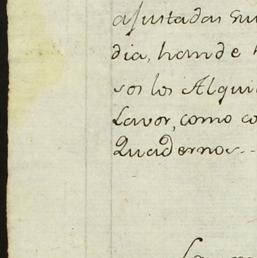 ajustadas en
dia, han de
sos los Alqui
Lavor, como co
Quadernos..